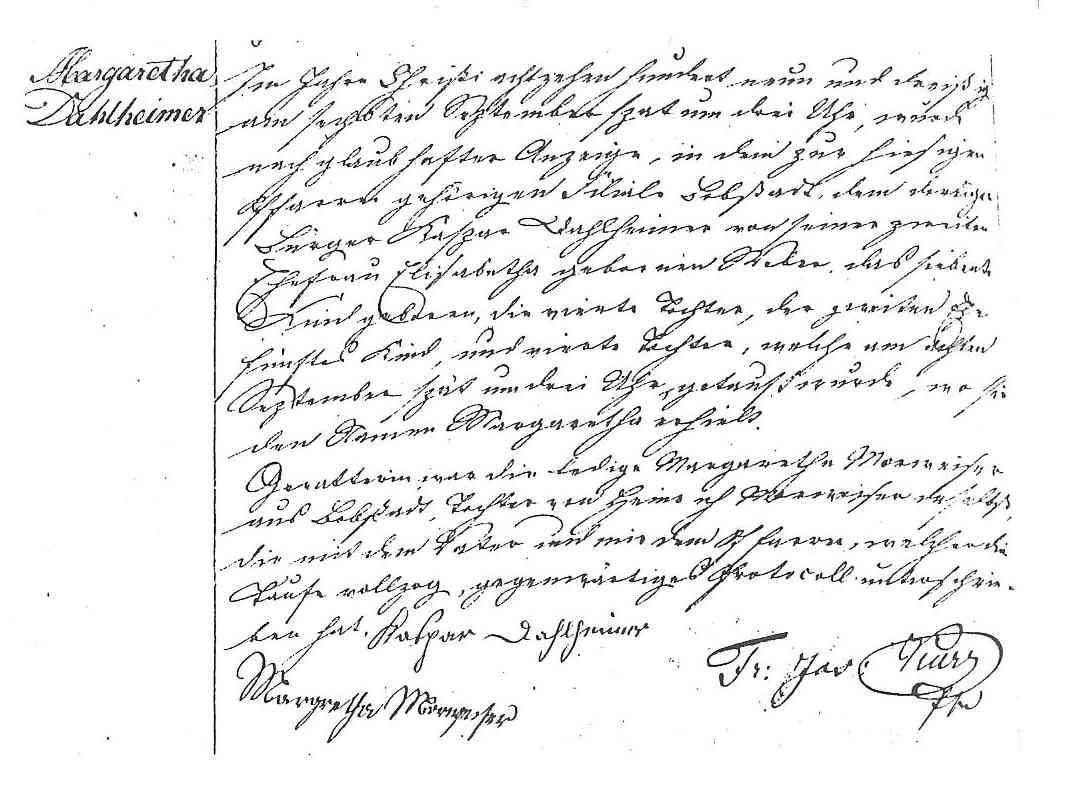 Margaretha
Dahlheimer
Im Jahre Christi achtzehen hundert neun und dreißig
am sechsten September spat um drei Uhr, wurde
nach glaubhafter Anzeige, in dem zur hiesigen
Pfarrei gehörigen Filiale Bobstadt, dem
Bürger Kaspar Dahlheimer von seiner zweiten
Ehefrau Elisabetha gebornen Weber, das siebente
Kind geboren, die vierte Tochter, der zweiten Ehe
fünftes Kind, und vierte Tochter, welche am achten
September spät um drei Uhr, getauft wurde, wo sie
den Namen Margaretha erhielt.
Gevatterin war die ledige Margaretha Morweiser
aus Bobstadt, Tochter von Heinrich Morweiser
die mit dem Vater und mir dem Pfarrer, welcher die
Taufe vollzog, gegenwärtiges Protocoll unterschrie-
ben hat. Kaspar Dahlheimer
Margretha Morweiser
Fr: Jos. Kurz